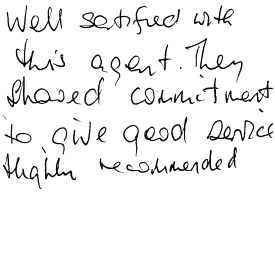 Well satisfied with
this agent. They
showed commitment
to give good service
Highly recommended